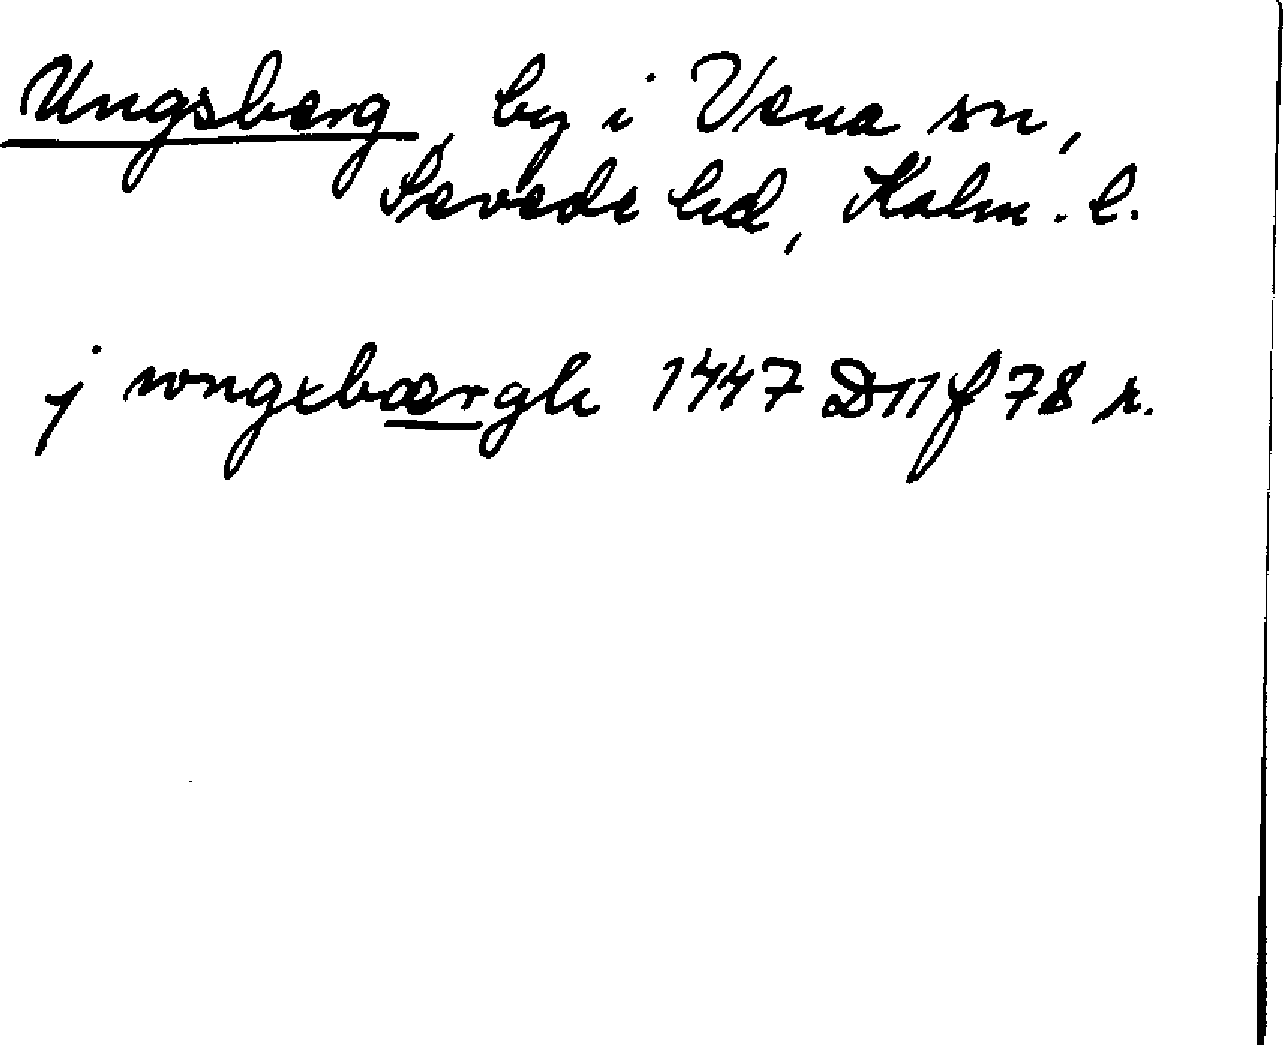 Ungsberg, by i Vena sn,
Sevede hd, Kalm. l.
j wngxbærgh 1447 D11 f 78 r.